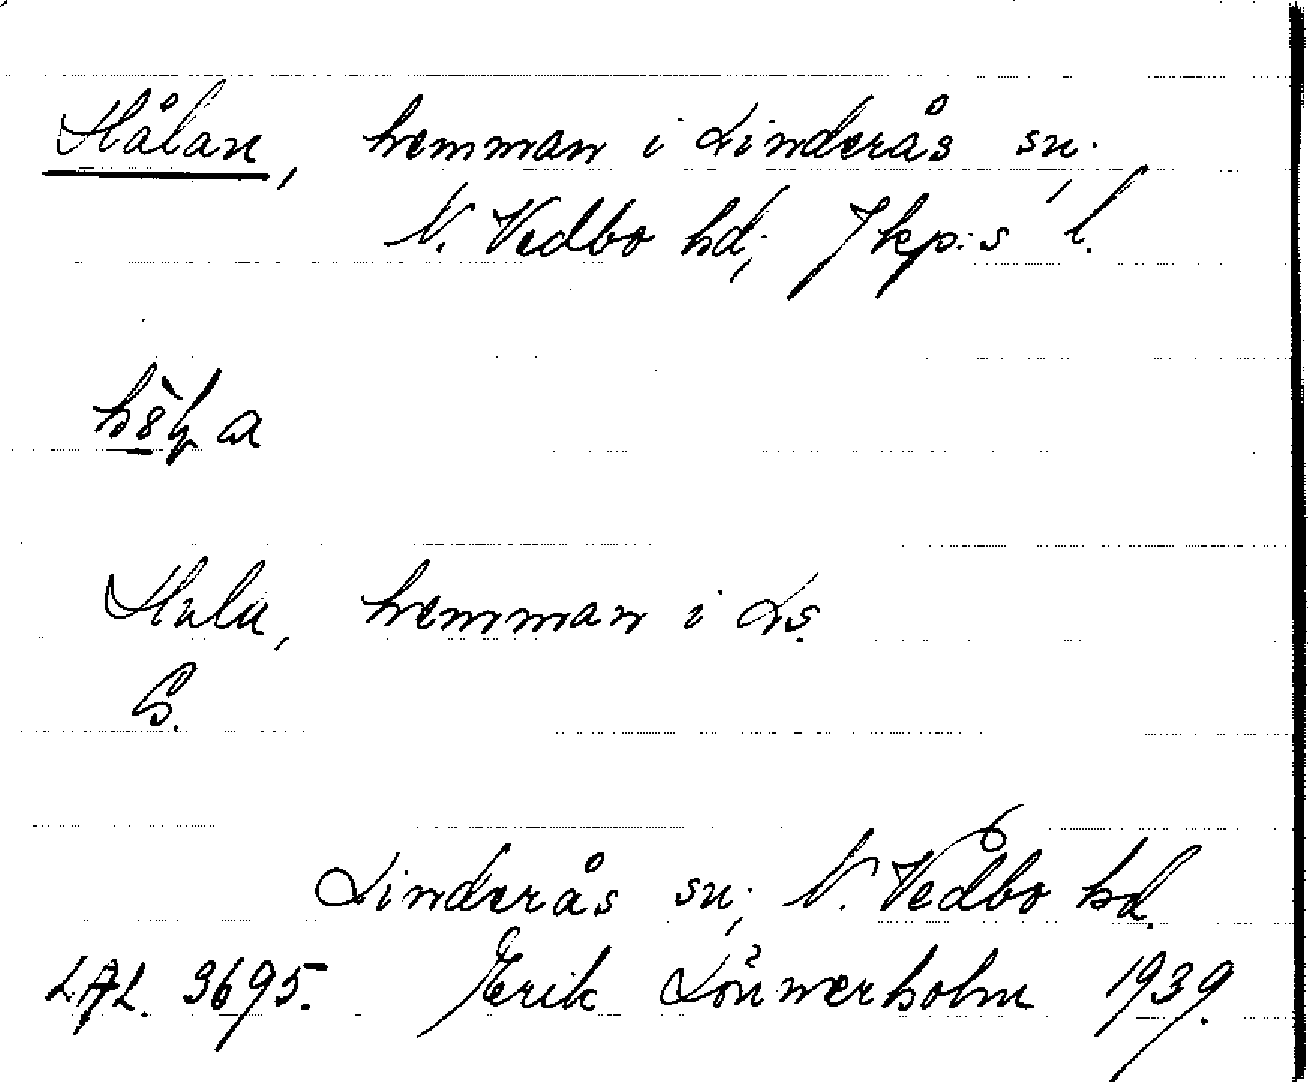 Hålan, hemman i Linderås sn.,
N. Vedbo hd; Jkp:s l.
Hula, hemman i Ls.
S.
Linderås sn; N. Vedbo hd.
LAL. 3695. Erik Lönnerholm 1939.